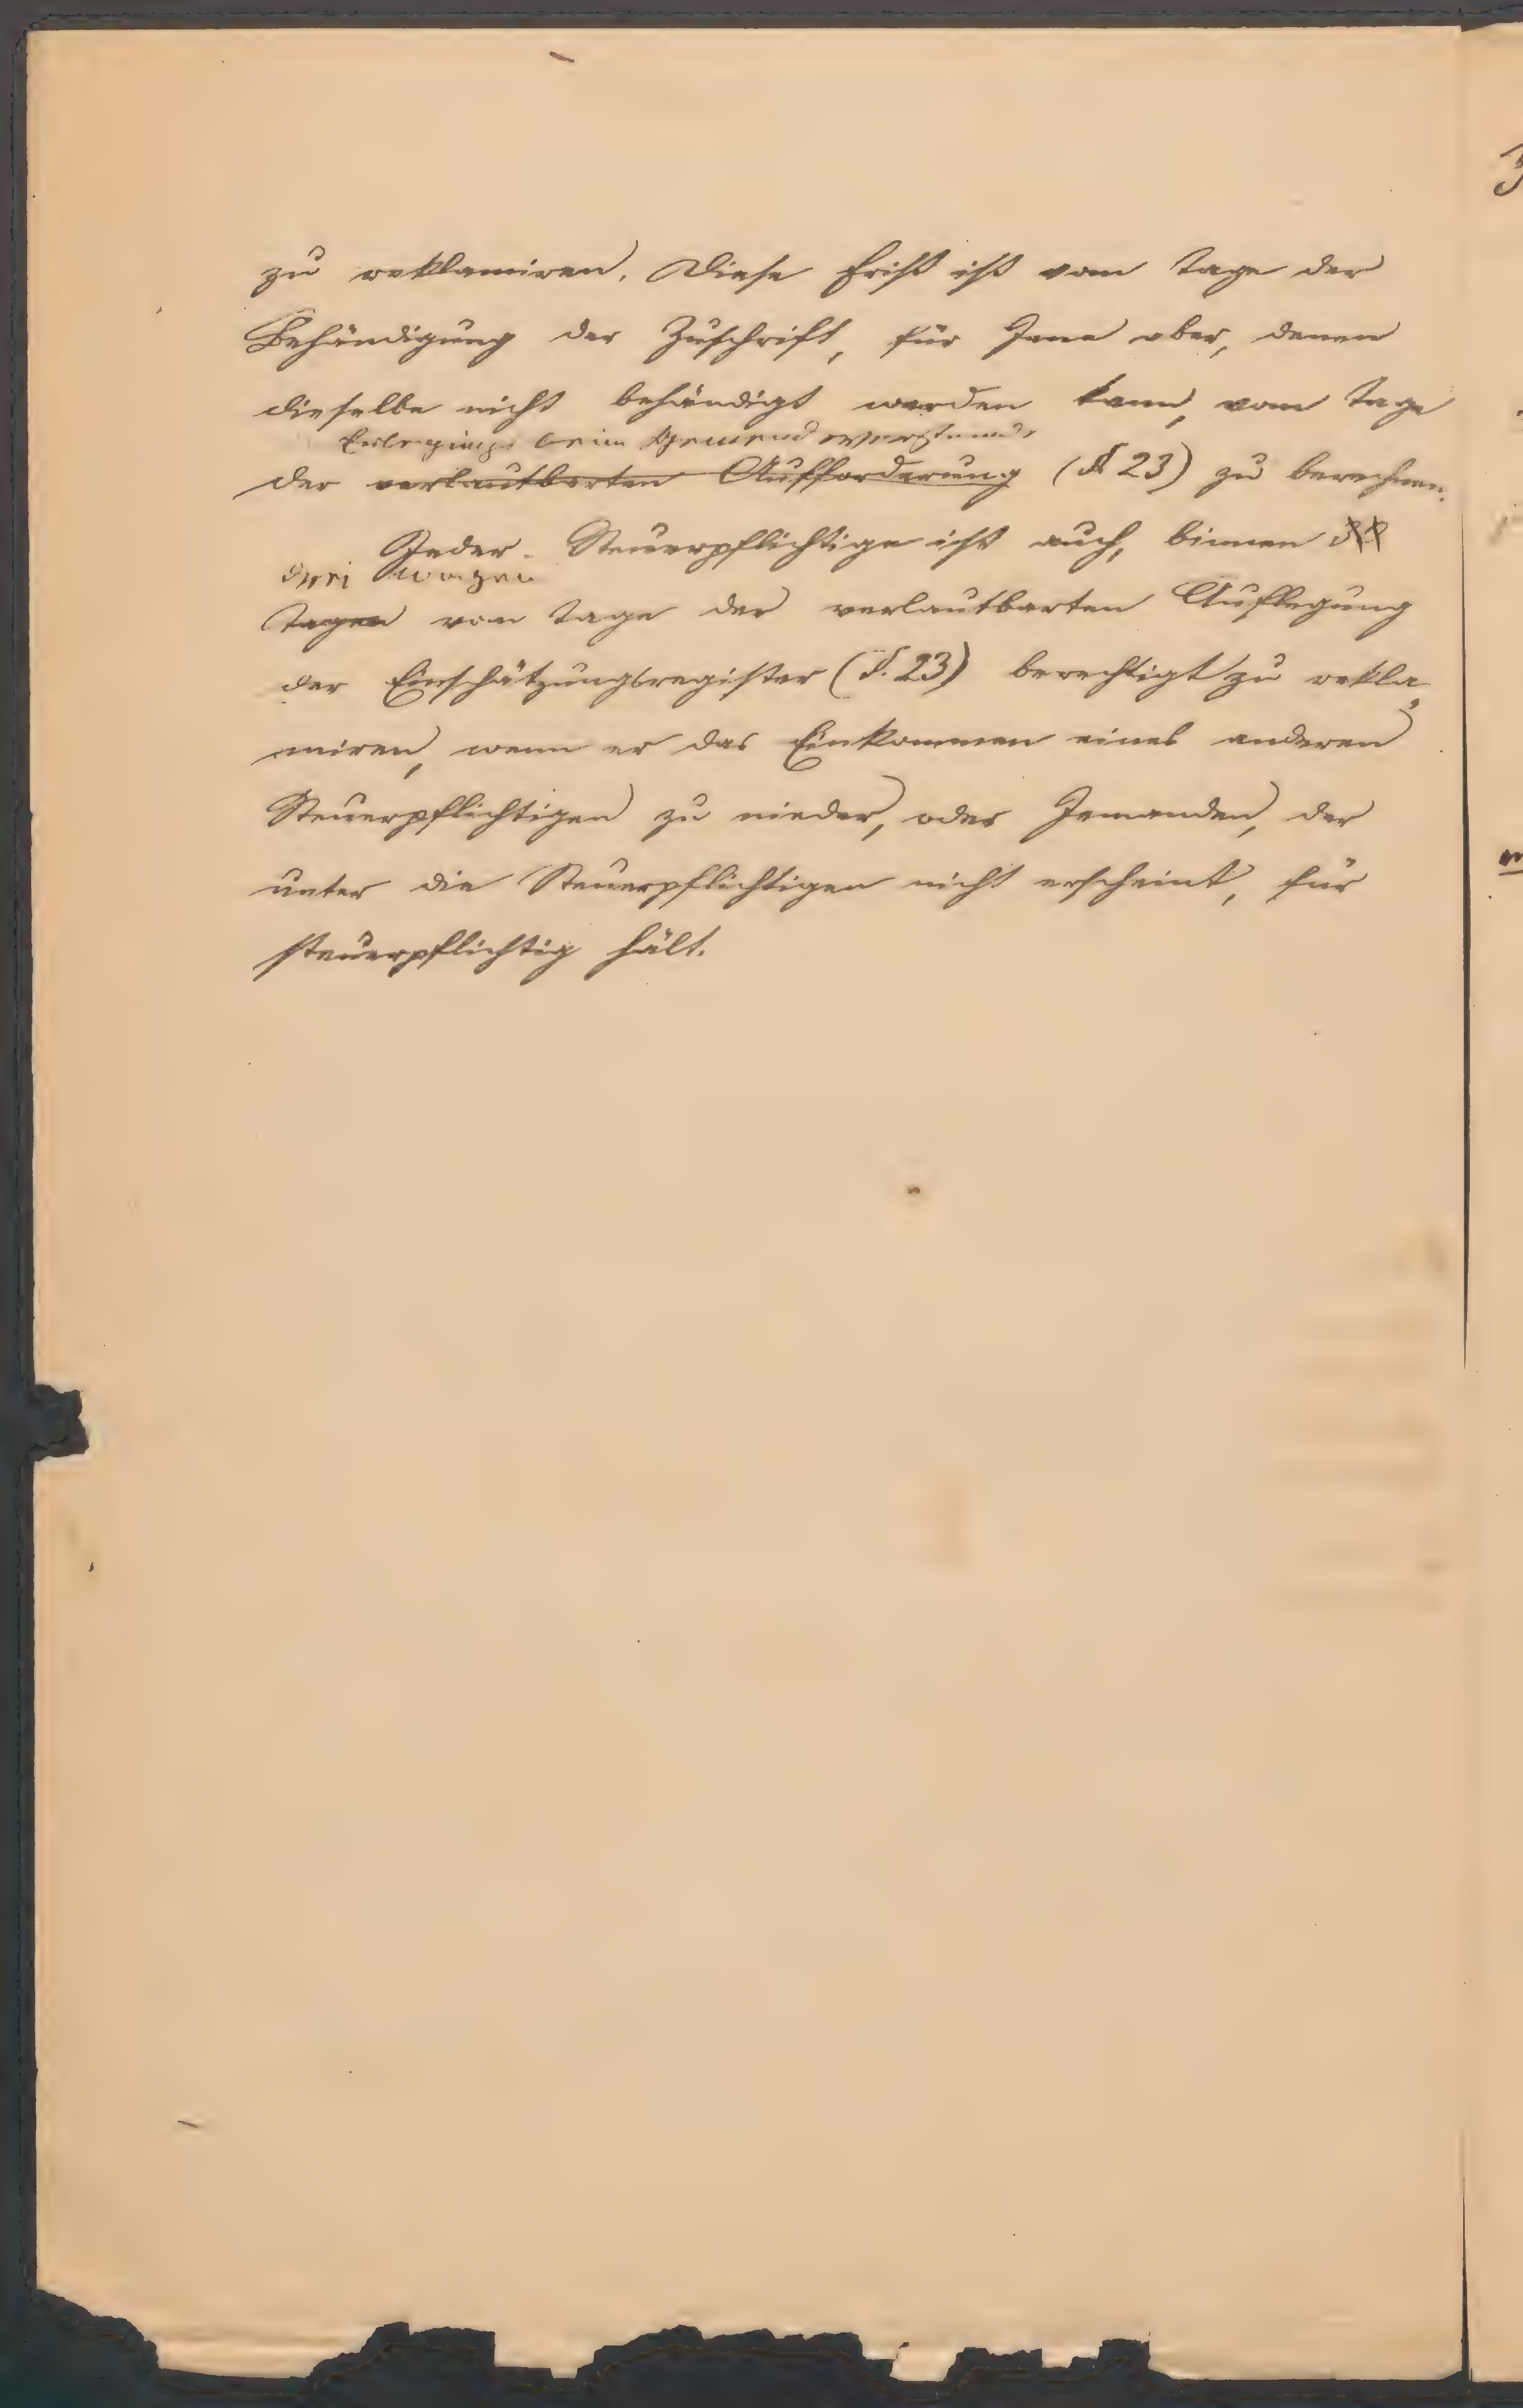 zu reklamiren. Diese Frist ist vom Tage der
Behändigung der Zuschrift, für Jene aber, denen
dieselbe nicht behändigt werden kann, vom Tage
Erlegung beim Gemeindevorstande
der verlautbarten Aufforderung (§ 23) zu berechnen.
Jeder Steuerpflichtige ist auch, binnen
drei Wochen
Tagen vom Tage der verlautbarten Auflegung
der Einschätzungsregister (§. 23) berechtigt zu rekla
miren, wenn er das Einkommen eines anderen
Steuerpflichtigen zu nieder, oder Jemanden, der
unter die Steuerpflichtigen nicht erscheint, für
steuerpflichtig hält.